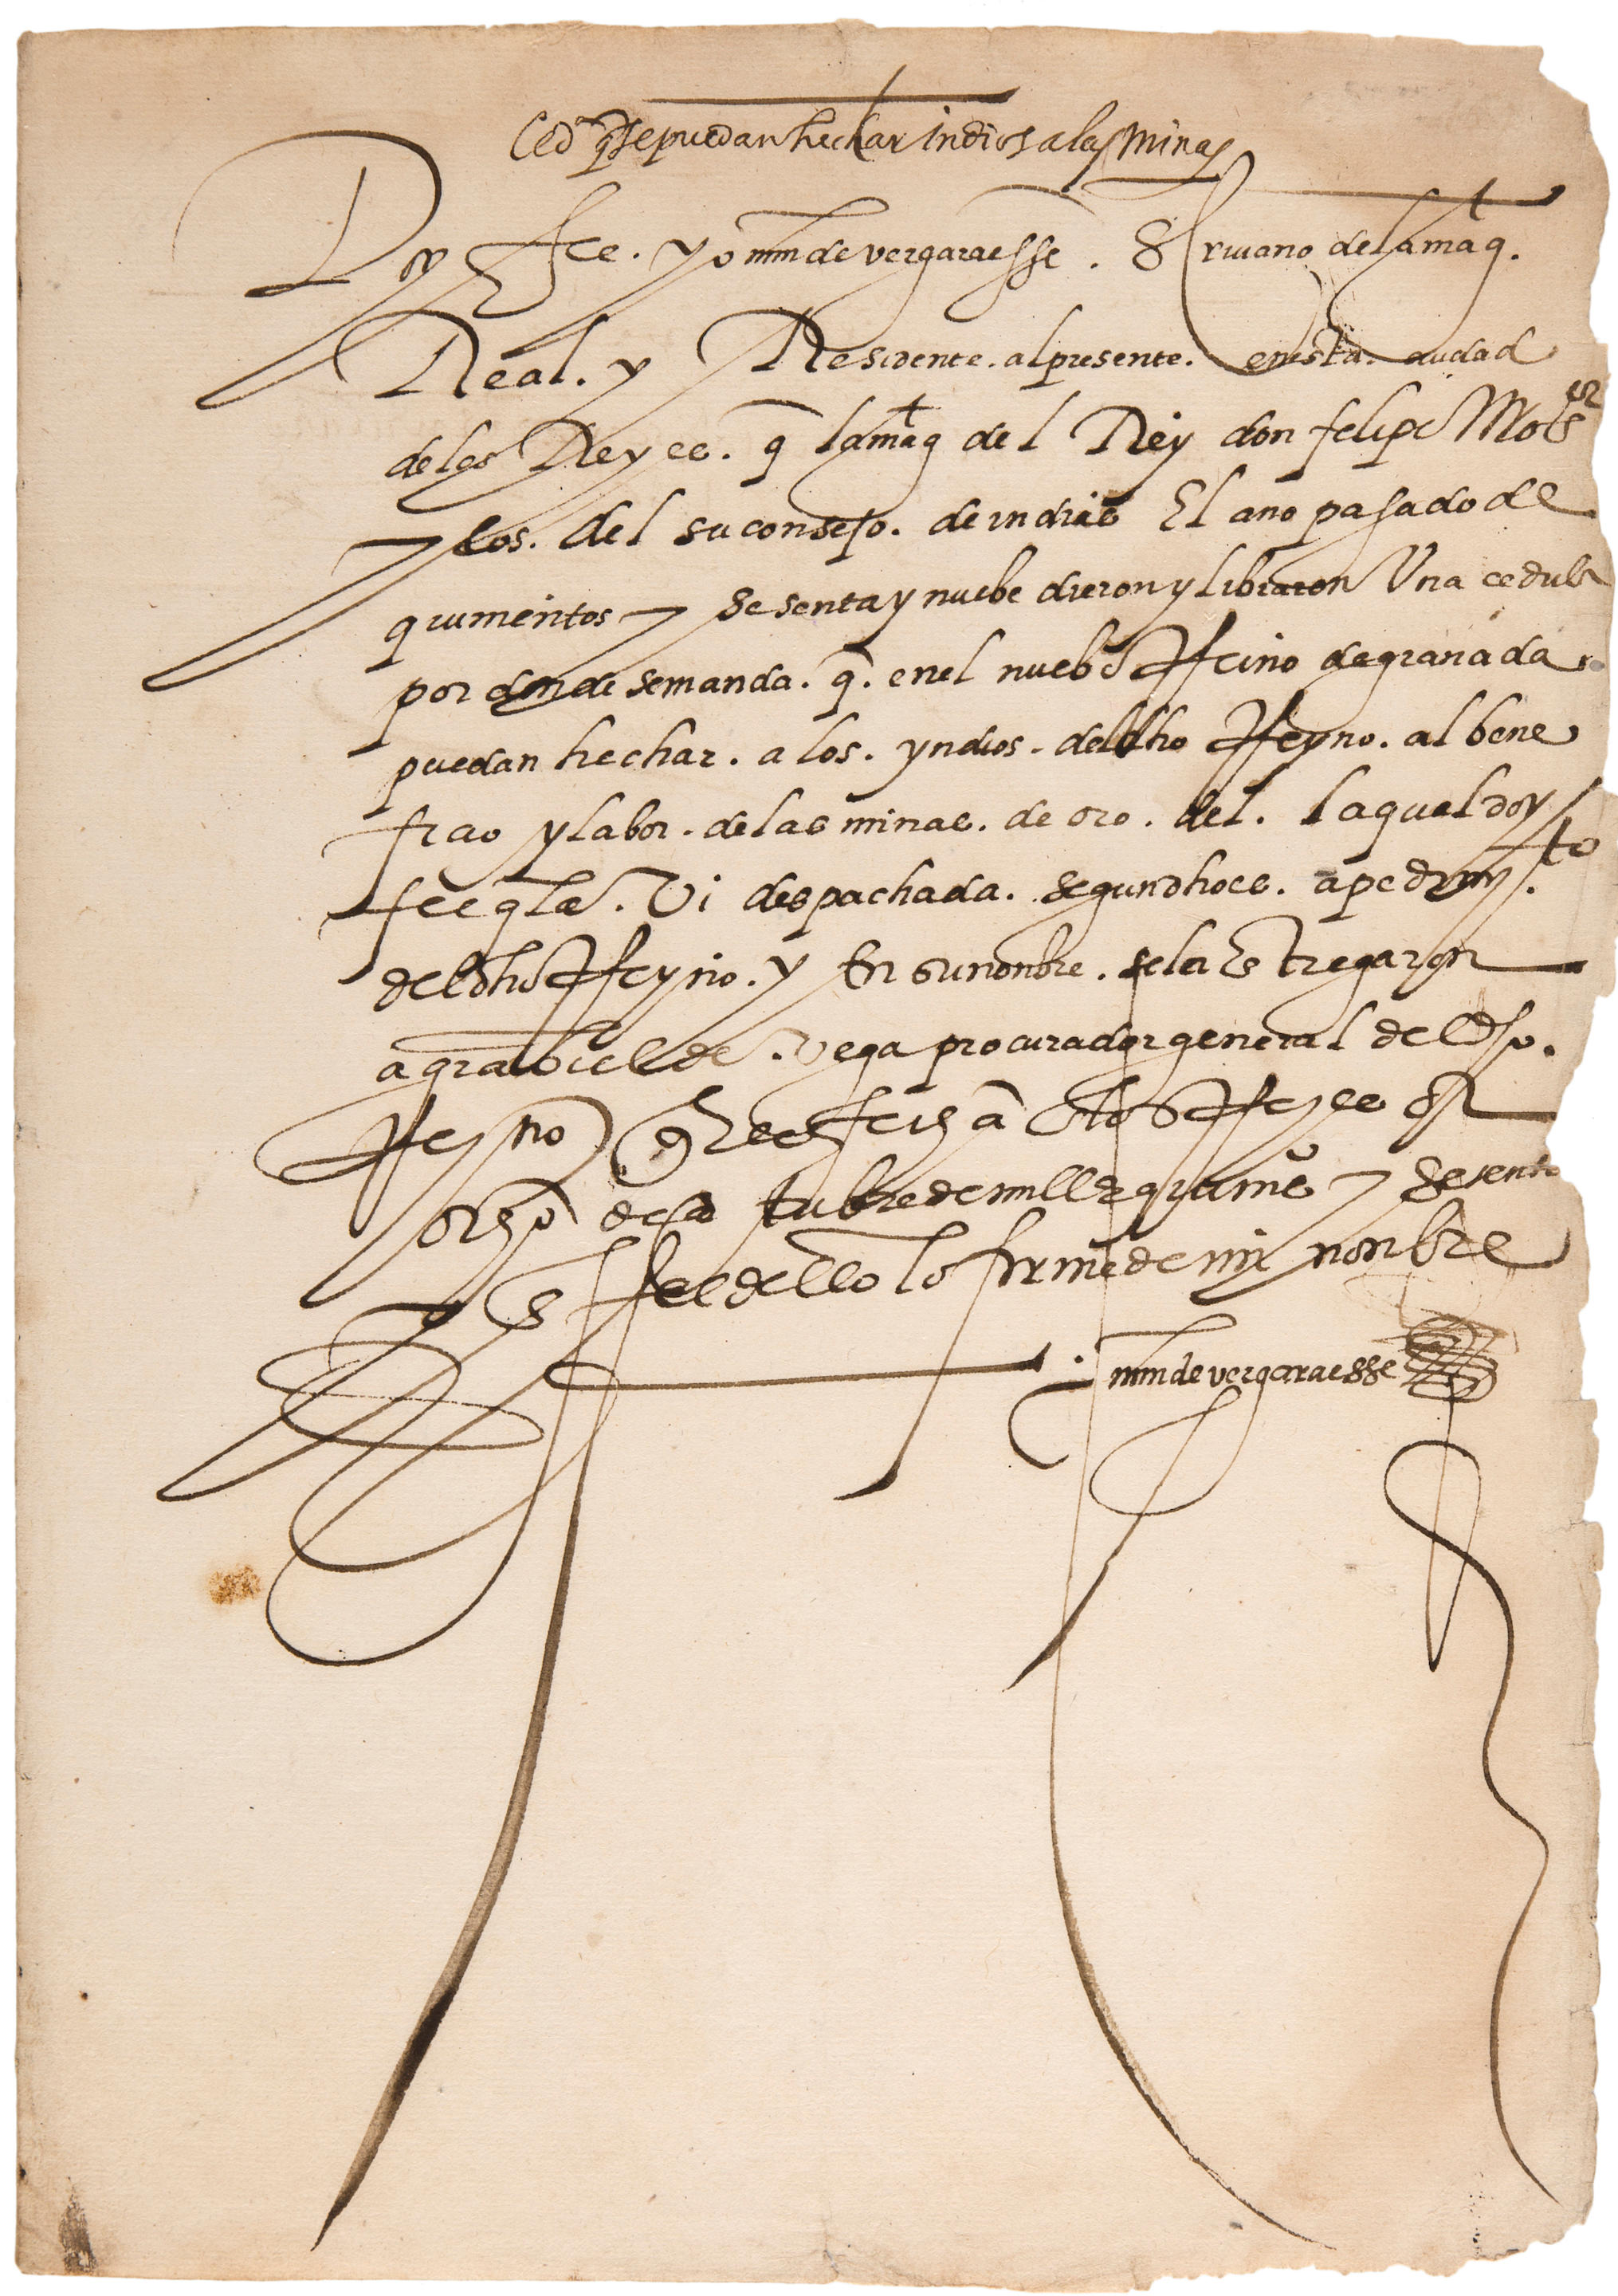 Ced q se puedan hechar indios a las minas
Doy ffee. yo mm de vergara esse. Escrivano de la mag.
Real. y Residente. al presente. en esta ciudad
de los Reyes. q la magt del Rey don felipe
y los. del su consejo. de indias El año pasado de
quinientos y sesenta y nuebe dieron y libraron Una cedula
por donde se manda. q. en el nuebo Reino de granada
puedan hechar. a los. yndios. del dho Reyno. al bene
ficio y labor. de las minas. de oro. del. la qual doy
fee q la. Vi despachada. segun dho es. a pedimyto
del dho Reyno. y En su nonbre. se la Entregaron
a grabiel de. vega procurador general del dho.
Reyno en los Reyes
de otubre de mill e quinis y sesenta
y en ffee dello lo firme de mi nonbre
mm de vergara esse